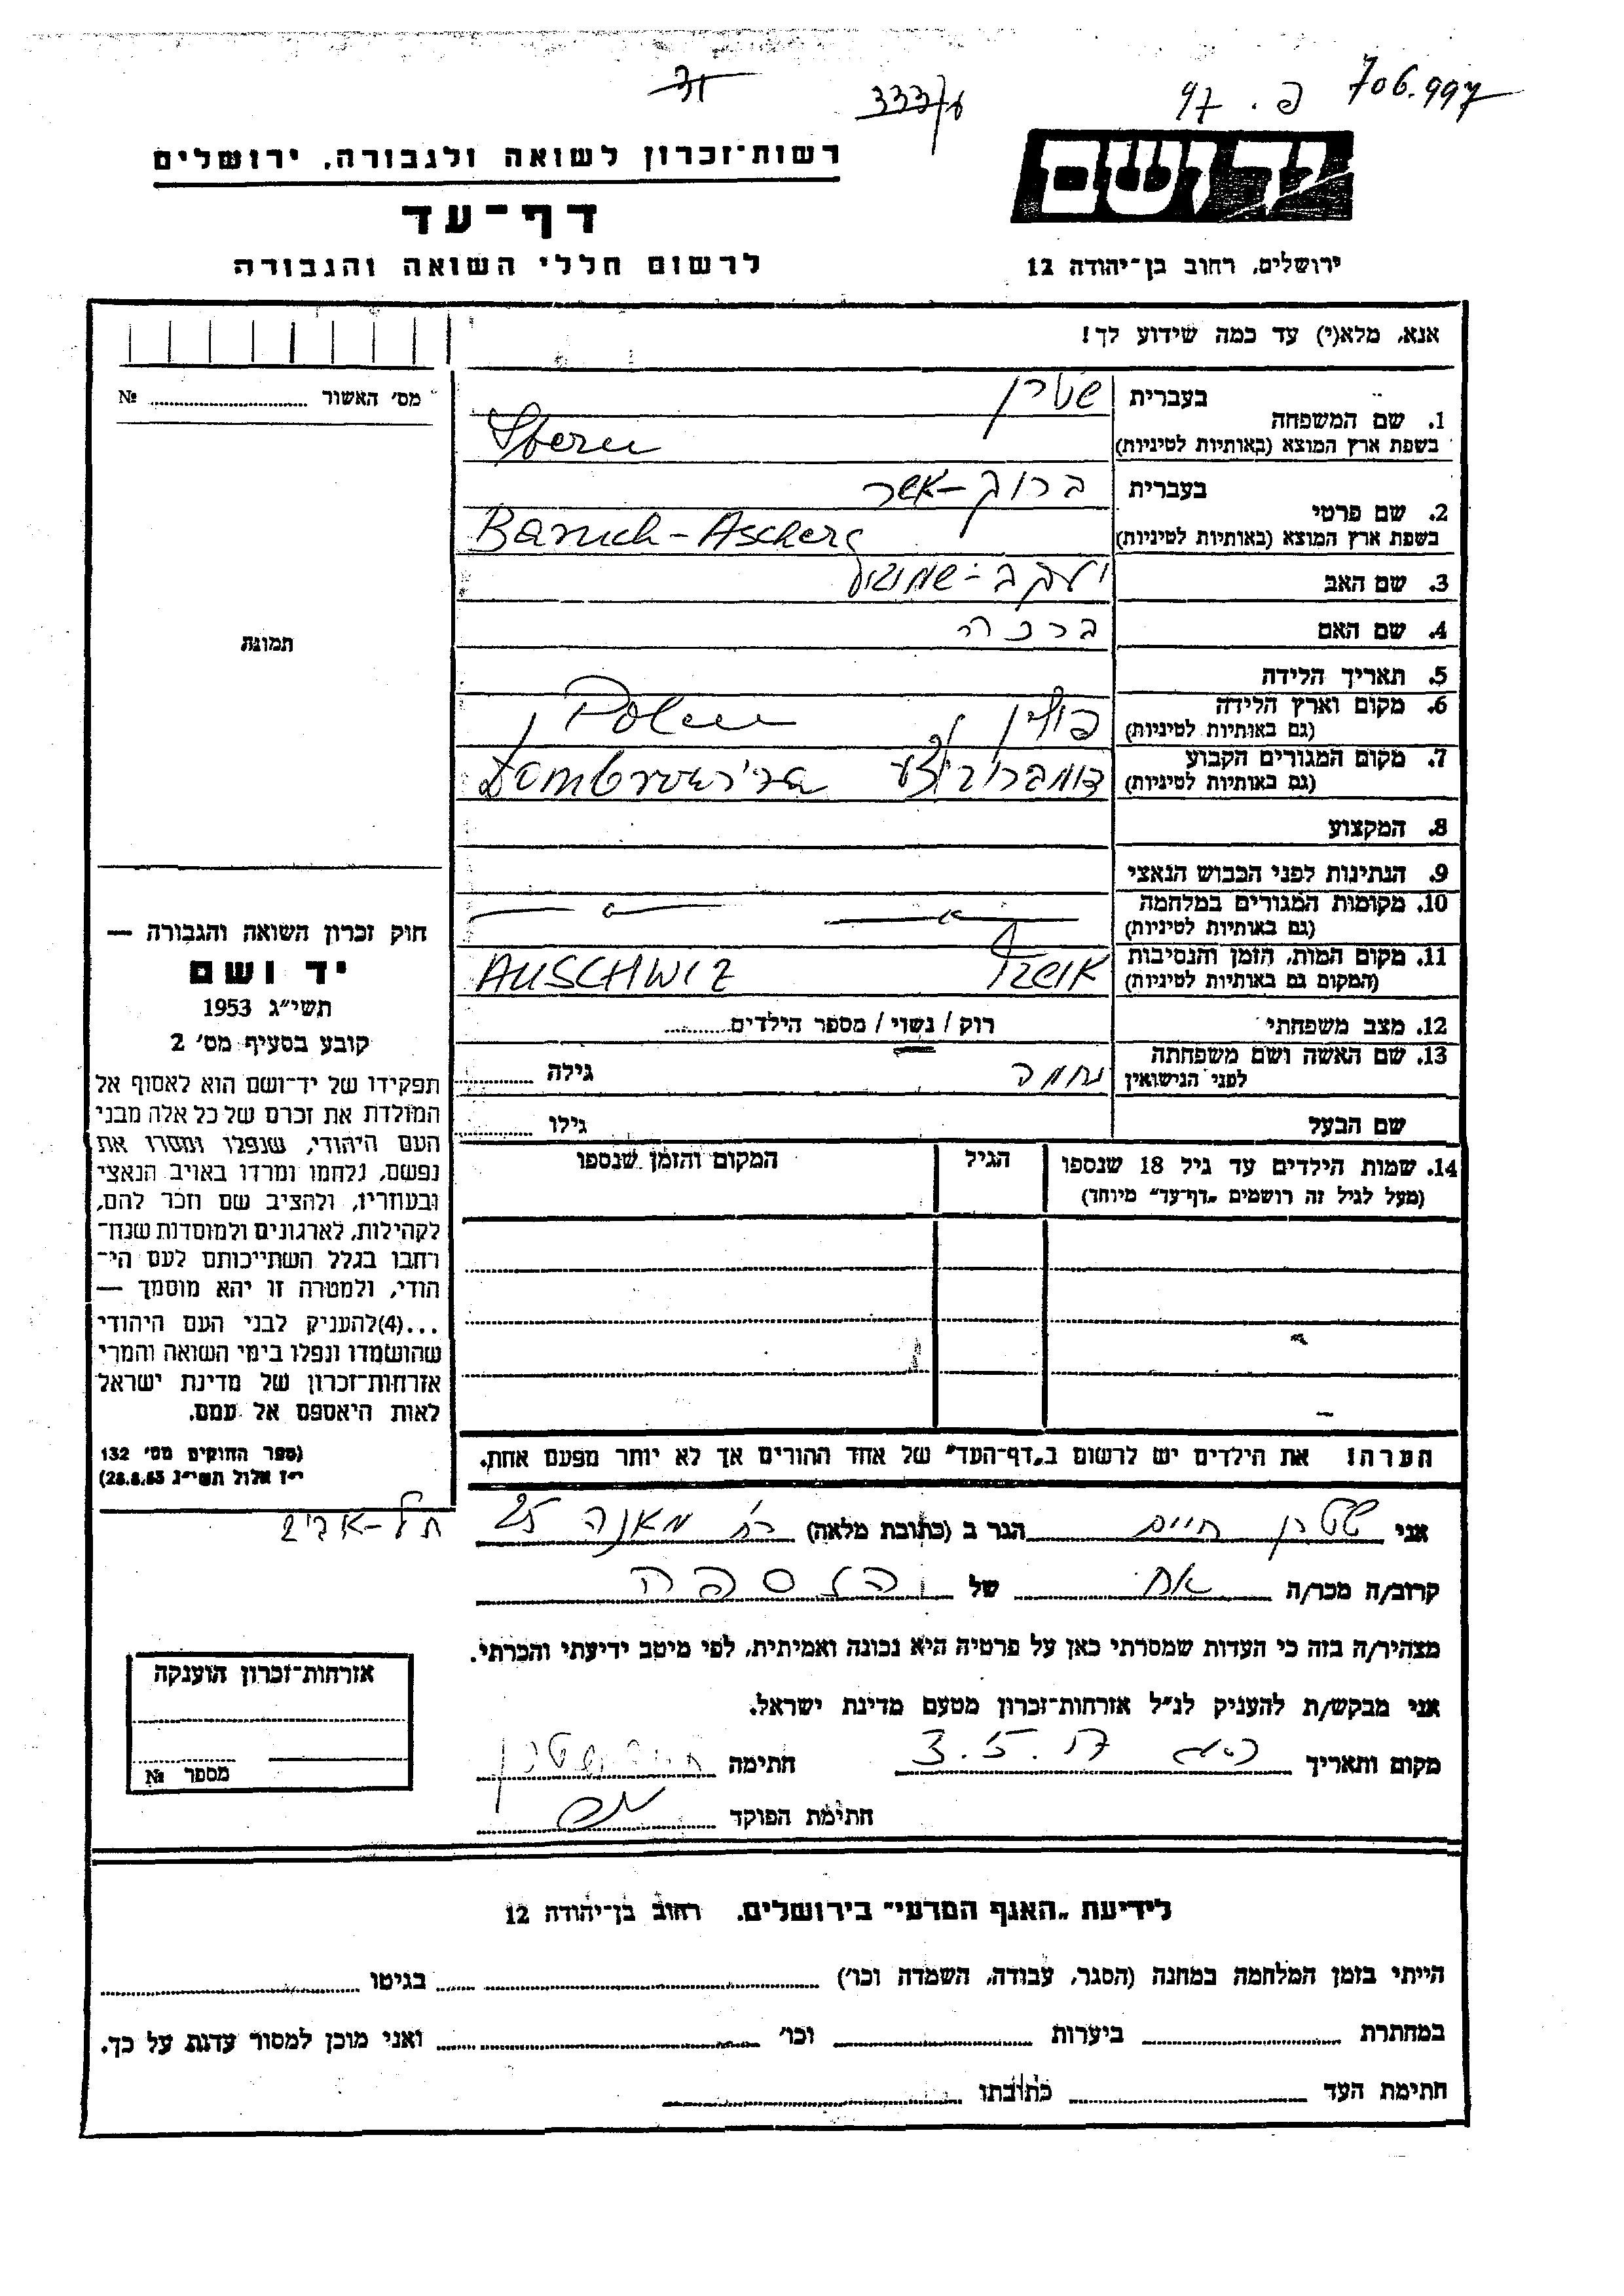 706.997
פ. 97
רשות־זכרון לשואה ולגבורה, ירושלים
יד ושם
דף־עד
לרשום חללי השואה והגבורה
ירושלים, רחוב בן־יהודה 12
אנא, מלא(י) עד כמה שידוע לך!
מס' האשור № ..........
1. שם המשפחה
בעברית שטרן
בשפת ארץ המוצא (באותיות לטיניות) Stern
2. שם פרטי
בעברית ברוך-אשר
בשפת ארץ המוצא (באותיות לטיניות) Baruch-Ascher
3. שם האב יעקב-שמואל
4. שם האם ברכה
תמונה
5. תאריך הלידה
6. מקום וארץ הלידה פולין, Polen
(גם באותיות לטיניות)
7. מקום המגורים הקבוע
(גם באותיות לטיניות)
8. המקצוע
9. הנתינות לפני הכבוש הנאצי
10. מקומות המגורים במלחמה
(גם באותיות לטיניות)
11. מקום המות, הזמן והנסיבות
(המקום גם באותיות לטיניות) AUSCHWIZ
12. מצב משפחתי רוק / נשוי / מספר הילדים..........
13. שם האשה ושם משפחתה נחמה גילה ..........
לפני הנישואין
שם הבעל גילו ..........
14. שמות הילדים עד גיל 18 שנספו הגיל המקום והזמן שנספו
(מעל לגיל זה רושמים „דף־עד" מיוחד)
הערה! את הילדים יש לרשום ב„דף־העד" של אחד ההורים אך לא יותר מפעם אחת.
חוק זכרון השואה והגבורה —
יד ושם
תשי״ג 1953
קובע בסעיף מס' 2
תפקידו של יד־ושם הוא לאסוף אל
המולדת את זכרם של כל אלה מבני
העם היהודי, שנפלו ומסרו את
נפשם, נלחמו ומרדו באויב הנאצי
ובעוזריו, ולהציב שם וזכר להם,
לקהילות, לארגונים ולמוסדות שנח־
רבו בגלל השתייכותם לעם הי־
הודי, ולמטרה זו יהא מוסמך —
...(4)להעניק לבני העם היהודי
שהושמדו ונפלו בימי השואה והמרי
אזרחות־זכרון של מדינת ישראל
לאות היאספם אל עמם.
(ספר החוקים מס' 132
י״ז אלול תשי״ג 28.8.53)
אני שטרן חיים הגר ב (כתובת מלאה) רח מאנה 25 תל-אביב
קרוב/ה מכר/ה אח של הנספה
מצהיר/ה בזה כי העדות שמסרתי כאן על פרטיה היא נכונה ואמיתית, לפי מיטב ידיעתי והכרתי.
אני מבקש/ת להעניק לנ״ל אזרחות־זכרון מטעם מדינת ישראל.
מקום ותאריך חתימה
חתימת הפוקד
אזרחות־זכרון הוענקה
מספר №
לידיעת „האגף המדעי" בירושלים, רחוב בן־יהודה 12
הייתי בזמן המלחמה במחנה (הסגר, עבודה, השמדה וכו') .......... בגיטו ..........
במחתרת .......... ביערות .......... וכו' .......... ואני מוכן למסור עדות על כך.
חתימת העד .......... כתובתו ..........